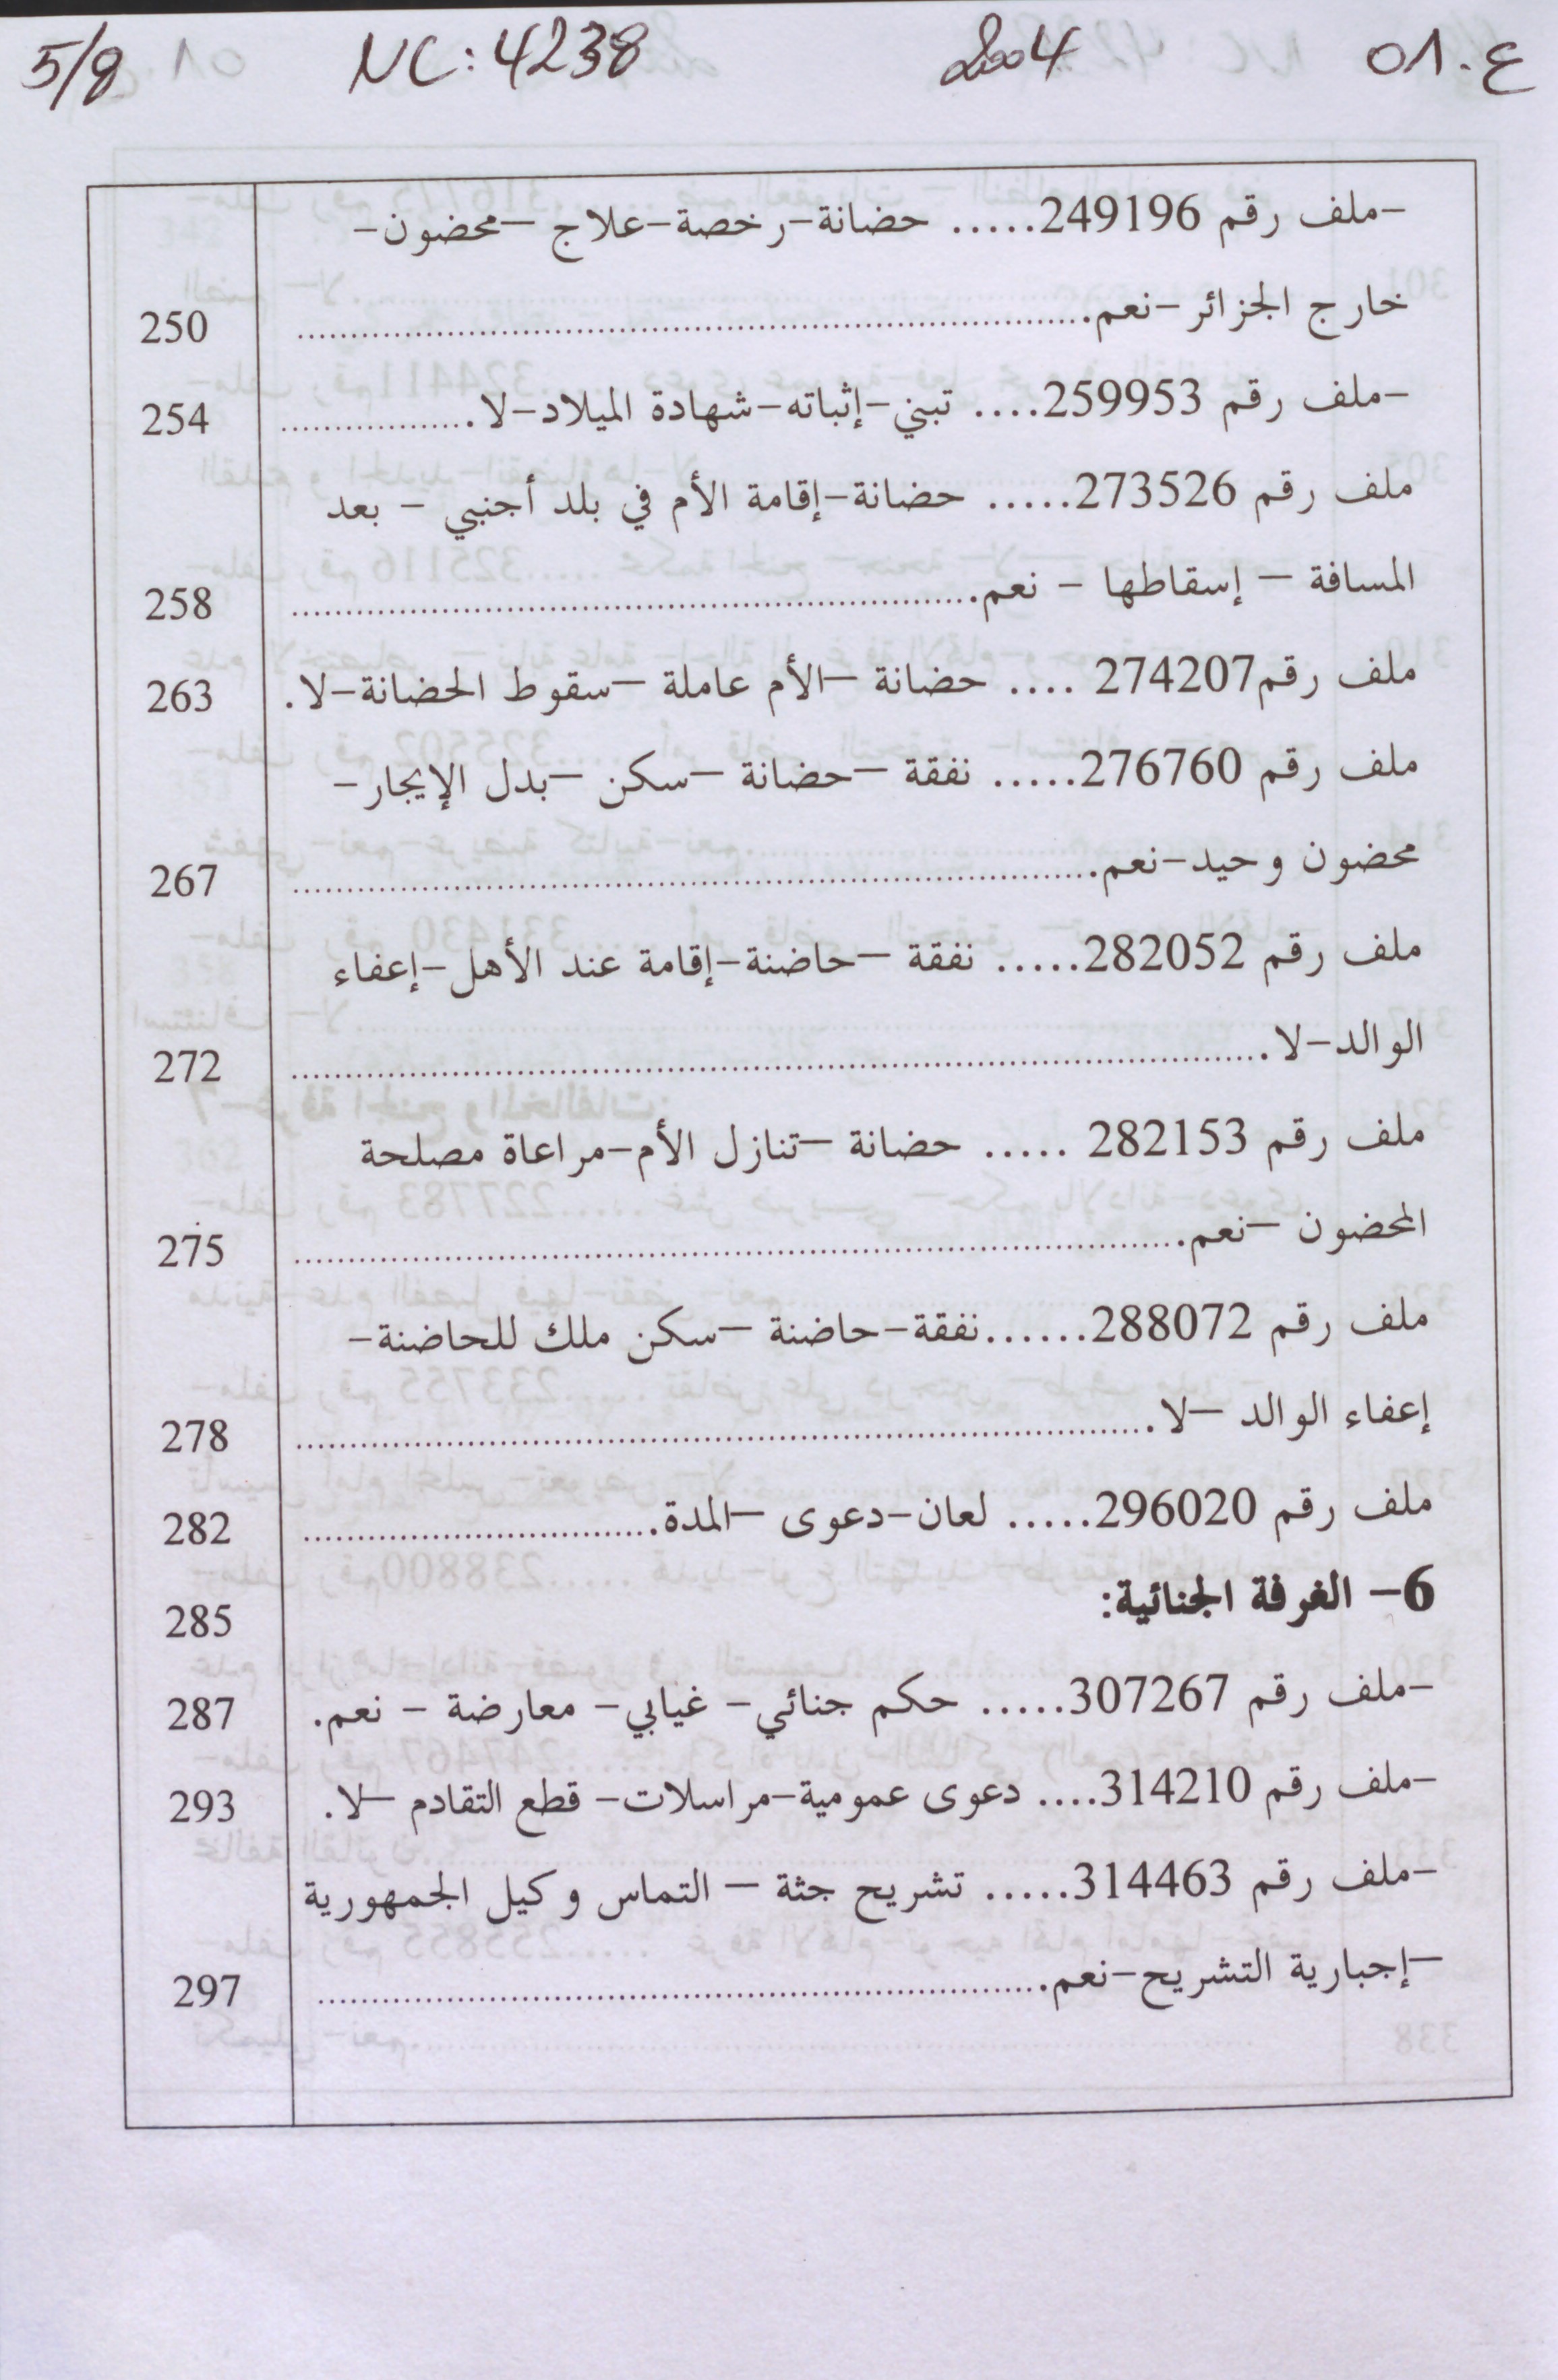 ع.01 2004 NC: 4238 5/8
-ملف رقم 249196..... حضانة-رخصة-علاج –محضون-
خارج الجزائر-نعم. 250
-ملف رقم 259953.... تبني-إثباته-شهادة الميلاد-لا. 254
ملف رقم 273526..... حضانة-إقامة الأم في بلد أجنبي - بعد
المسافة – إسقاطها - نعم. 258
ملف رقم274207 .... حضانة –الأم عاملة –سقوط الحضانة-لا. 263
ملف رقم 276760..... نفقة –حضانة –سكن –بدل الإيجار-
محضون وحيد-نعم. 267
ملف رقم 282052..... نفقة –حاضنة-إقامة عند الأهل-إعفاء
الوالد-لا. 272
ملف رقم 282153 ..... حضانة –تنازل الأم-مراعاة مصلحة
المحضون –نعم. 275
ملف رقم 288072......نفقة-حاضنة –سكن ملك للحاضنة-
إعفاء الوالد –لا. 278
ملف رقم 296020..... لعان-دعوى –المدة. 282
6- الغرفة الجنائية: 285
-ملف رقم 307267..... حكم جنائي- غيابي- معارضة - نعم. 287
-ملف رقم 314210.... دعوى عمومية-مراسلات- قطع التقادم –لا. 293
-ملف رقم 314463..... تشريح جثة – التماس وكيل الجمهورية
–إجبارية التشريح-نعم. 297